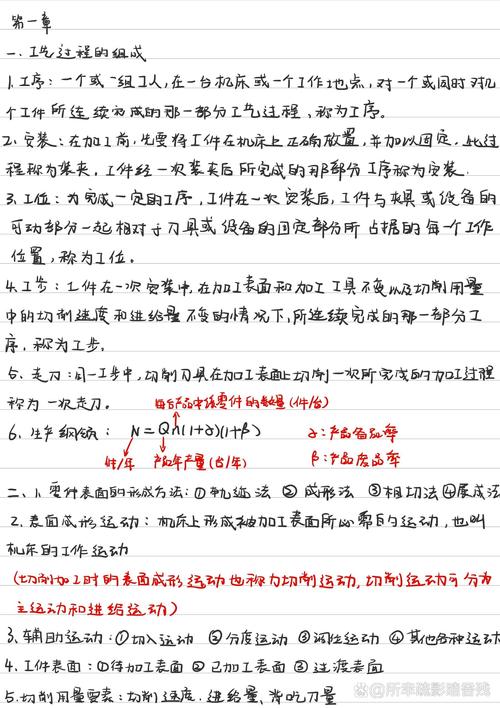 第一章
一、工艺过程的组成
1.工序：一个或一组工人，在一台机床或一个工作地点，对一个或同时对几
个工件所连续完成的那一部分工艺过程，称为工序。
2.安装：在加工前，先要将工件在机床上正确放置，并加以固定，此过
程称为装夹，工件经一次装夹后所完成的那部分工序称为安装.
3.工位：为完成一定的工序，工件在一次安装后，工件与夹具或设备的
可动部分一起相对于刀具或设备的固定部分所占据的每一个工作
位置，称为工位。
4.工步：工件在一次安装中，在加工表面和加工工具不变以及切削用量
中的切削速度和进给量不变的情况下，所连续完成的那一部分工
序，称为工步。
5.走刀：同一工步中，切削刀具在加工表面上切削一次所完成的加工过程
称为一次走刀。
每台产品中该零件的数量(件/台)
6.生产纲领： N=Qn(1+α)(1+β) α：产品备品率
件/年 产品年产量(台/年) β：产品废品率
二、1.零件表面的形成方法：①轨迹法 ②成形法 ③相切法 ④展成法
2.表面成形运动：机床上形成被加工表面所必需的运动，也叫
机床的工作运动
(切削加工时的表面成形运动也称为切削运动，切削运动可分为
主运动和进给运动)
3.辅助运动：①切入运动 ②分度运动 ③调位运动 ④其他各种运动
4.工件表面：①待加工表面 ②已加工表面 ③过渡表面
5.切削用量要素：切削速度.进给量、背吃刀量
@所幸疏影暗香残